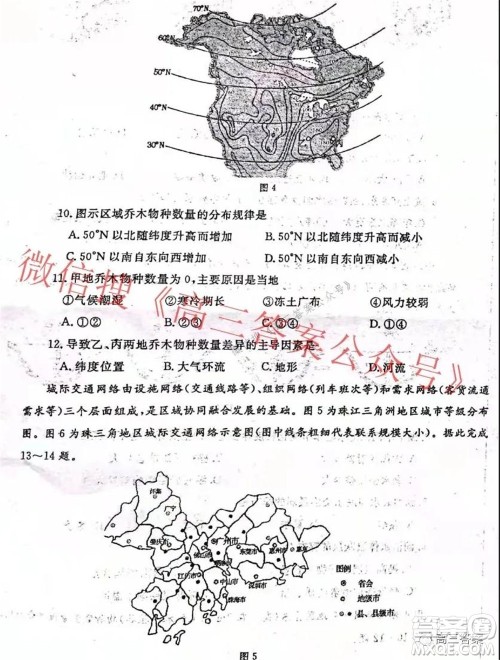 70°N
60°N
50°N
40°N
30°N
图 4
10. 图示区域乔木物种数量的分布规律是
A. 50°N 以北随纬度升高而增加 B. 50°N 以北随纬度升高而减小
C. 50°N 以南自东向西增加 D. 50°N 以南自东向西减小
11. 甲地乔木物种数量为 0,主要原因是当地
①气候潮湿 ②寒冷期长 ③冻土广布 ④风力较弱
A. ①② B. ②③ C. ③④ D. ①④
12. 导致乙、丙两地乔木物种数量差异的主导因素是
A. 纬度位置 B. 大气环流 C. 地形 D. 河流
城际交通网络由设施网络(交通线路等)、组织网络(列车班次等)和需求网络(客货流通
需求等)三个层面组成,是区域协同融合发展的基础。图 5 为珠江三角洲地区城市等级分布
图。图 6 为珠三角地区城际交通网络示意图(图中线条粗细代表联系规模大小)。据此完成
13～14 题。
怀集
广宁
肇庆市
广州市
佛山市
东莞市
惠州市
惠东
江门市
中山市
深圳市
珠海市
图例
省会
地级市
县、县级市
图 5
微信搜《高三答案公众号》
高三答案
答案圈
MXQE.COM